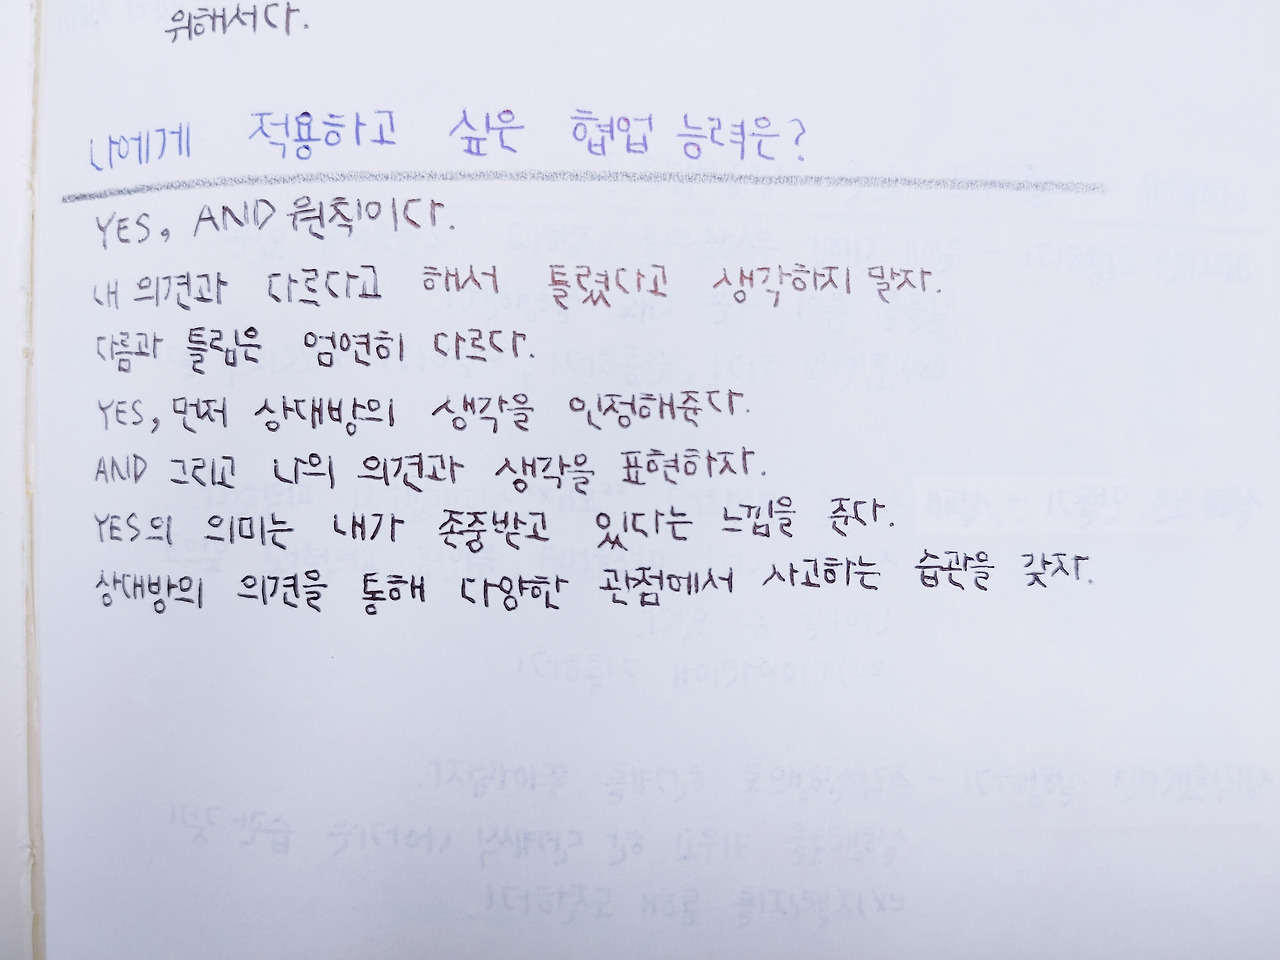 위해서다.
나에게 적용하고 싶은 협업 능력은?
YES, AND 원칙이다.
내 의견과 다르다고 해서 틀렸다고 생각하지 말자.
다름과 틀림은 엄연히 다르다.
YES, 먼저 상대방의 생각을 인정해준다.
AND 그리고 나의 의견과 생각을 표현하자.
YES의 의미는 내가 존중받고 있다는 느낌을 준다.
상대방의 의견을 통해 다양한 관점에서 사고하는 습관을 갖자.